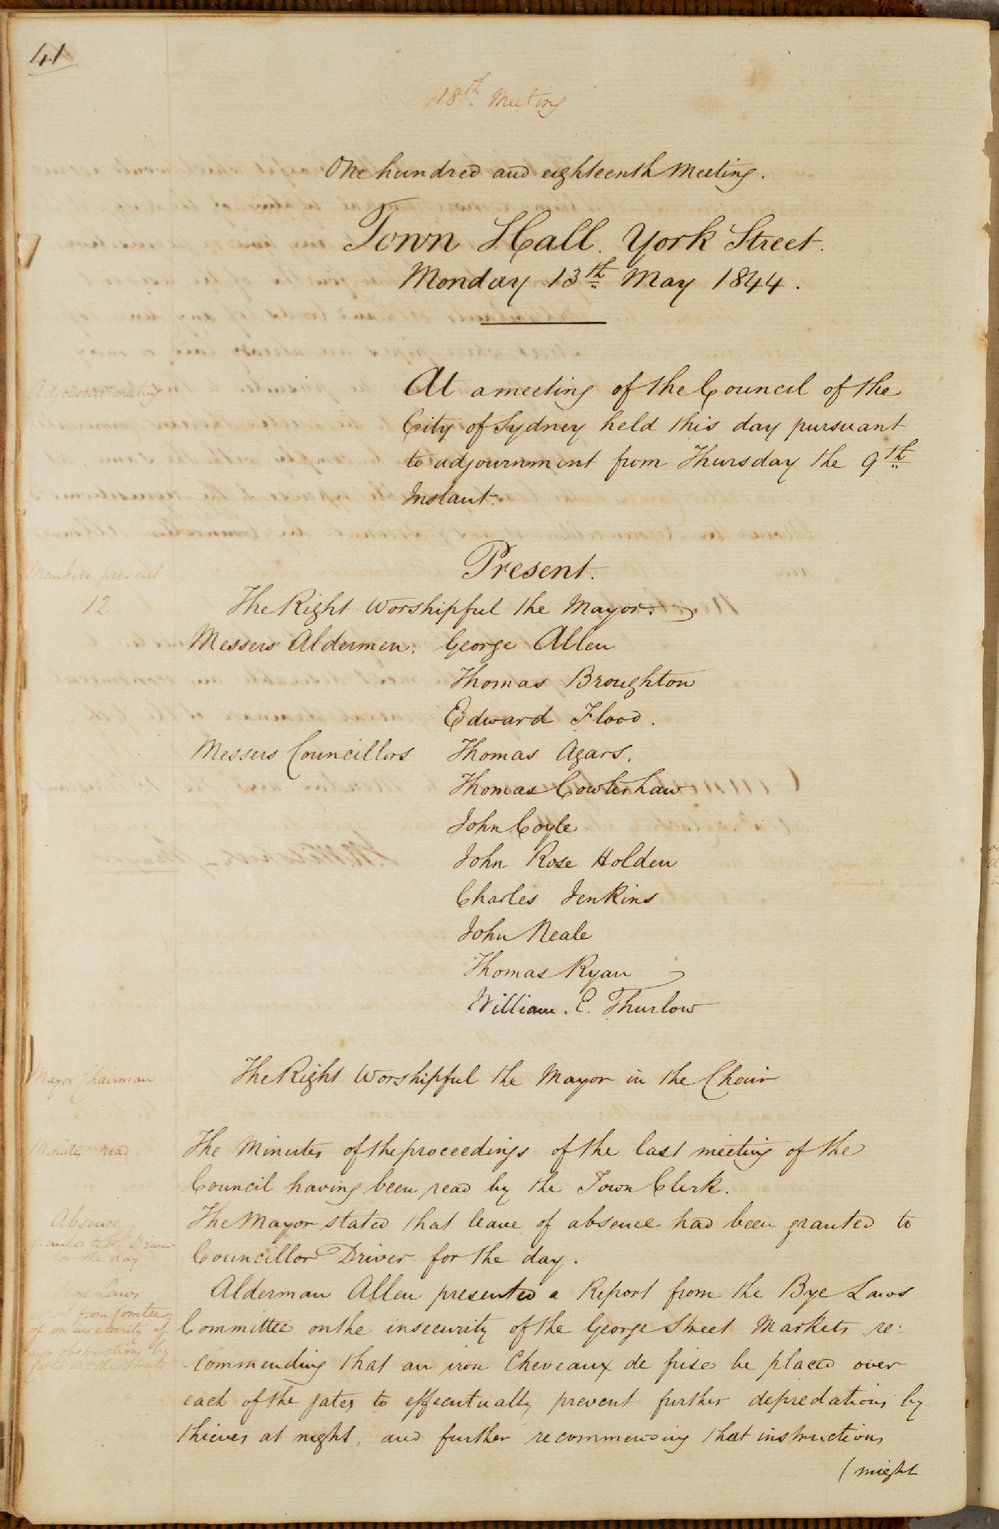 41
18th Meeting
One hundred and eighteenth Meeting.
Town Hall. York Street.
Monday 13th May 1844.
At a meeting of the Council of the
City of Sydney held this day pursuant
to adjournment from Thursday the 9th
Instant.
Present.
Members present
12
The Right Worshipful the Mayor.
Messers Aldermen. George Allen
Thomas Broughton
Edward Flood.
Messers Councillors Thomas Agars.
Thomas Cowlishaw
John Coyle
John Rose Holden
Charles Jenkins
John Neale
Thomas Ryan
William. E. Thurlow
Mayor Chairman
The Right Worshipful the Mayor in the Chair
Minutes read.
The Minutes of the proceedings of the last meeting of the
Council having been read by the Town Clerk.
Absence
granted to Cr Driver
for the day
The Mayor stated that leave of absence had been granted to
Councillor Driver for the day.
Bye Laws
of on insecurity of
Alderman Allen presented a Report from the Bye Laws
Committee on the insecurity of the George Street Markets re-
-commending that an iron Cheveaux de frise be placed over
each of the gates to effectually prevent further depredations by
thieves at night, and further recommending that instructions
(might